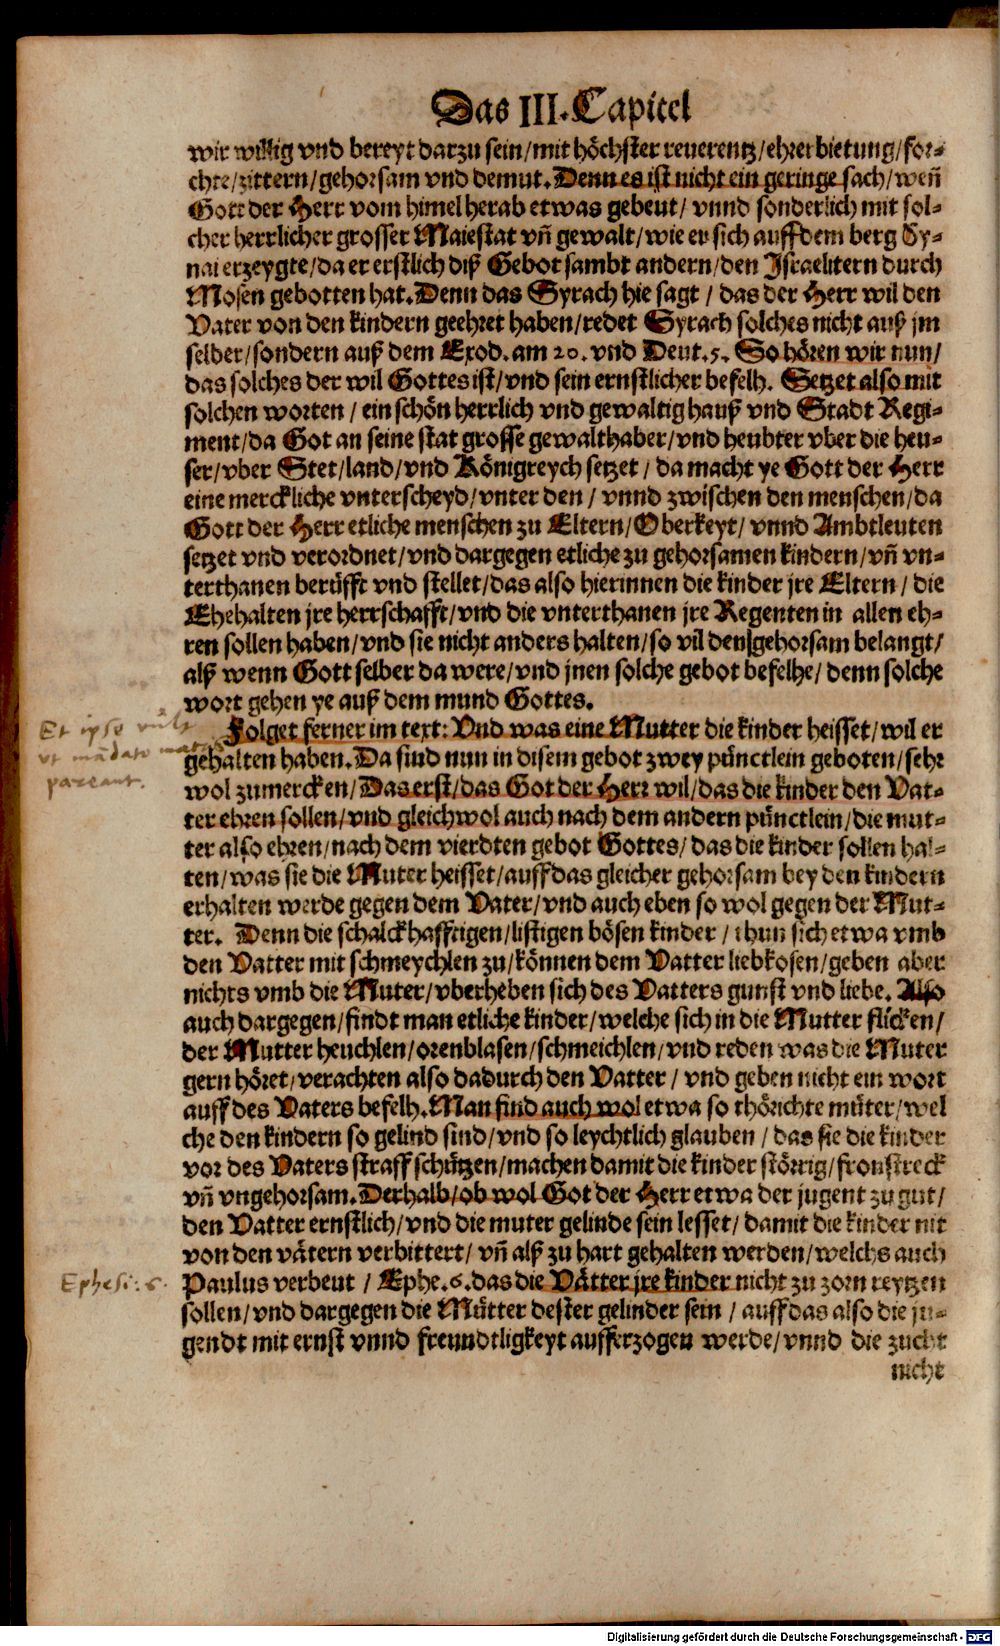 Das III. Capitel
wir willig vnd bereyt darzu sein/mit höchster reuerentz/ehrerbietung/for-
chte/zittern/gehorsam vnd demut. Denn es ist nicht ein geringe sach/weñ
Gott der Herr vom himel herab etwas gebeut/ vnnd sonderlich mit sol-
cher herrlicher grosser Maiestat vñ gewalt/wie er sich auff dem berg Sy-
nai erzeygte/da er erstlich diß Gebot sambt andern/den Israelitern durch
Mosen gebotten hat. Denn das Syrach hie sagt / das der Herr wil den
Vater von den kindern geehret haben/redet Syrach solches nicht auß jm
selber/sondern auß dem Exod. am 20. vnd Deut. 5. So hören wir nun/
das solches der wil Gottes ist/vnd sein ernstlicher befelh. Setzet also mit
solchen worten / ein schön herrlich vnd gewaltig hauß vnd Stadt Regi-
ment/da Got an seine stat grosse gewalthaber/vnd heubter vber die heu-
ser/vber Stet/land/vnd Königreych setzet / da macht ye Gott der Herr
eine merckliche vnterscheyd/vnter den / vnnd zwischen den menschen/da
Gott der Herr etliche menschen zu Eltern/Oberkeyt/ vnnd Ambtleuten
setzet vnd verordnet/vnd dargegen etliche zu gehorsamen kindern/vñ vn-
terthanen berüfft vnd stellet/das also hierinnen die kinder jre Eltern / die
Ehehalten jre herrschafft/vnd die vnterthanen jre Regenten in allen eh-
ren sollen haben/vnd sie nicht anders halten/so vil den gehorsam belangt/
alß wenn Gott selber da were/vnd jnen solche gebot befelhe/ denn solche
wort gehen ye auß dem mund Gottes.
Et ipse vult
vt mãdato matris
pareant.
Folget ferner im text: Vnd was eine Mutter die kinder heisset/wil er
gehalten haben. Da sind nun in disem gebot zwey pünctlein geboten/sehr
wol zumercken/Das erst/das Got der Herr wil/das die kinder den Vat-
ter ehren sollen/vnd gleichwol auch nach dem andern pünctlein/die mut-
ter also ehren/nach dem vierdten gebot Gottes/das die kinder sollen hal-
ten/was sie die Muter heisset/auff das gleicher gehorsam bey den kindern
erhalten werde gegen dem Vater/vnd auch eben so wol gegen der Mut-
ter. Denn die schalckhafftigen/listigen bösen kinder / thun sich etwa vmb
den Vatter mit schmeychlen zu/können dem Vatter liebkosen/geben aber
nichts vmb die Muter/vberheben sich des Vatters gunst vnd liebe. Also
auch dargegen/findt man etliche kinder/welche sich in die Mutter flicken/
der Mutter heuchlen/orenblasen/schmeichlen/vnd reden was die Muter
gern höret/verachten also dadurch den Vatter / vnd geben nicht ein wort
auff des Vaters befelh. Man find auch wol etwa so thörichte müter/wel
che den kindern so gelind sind/vnd so leychtlich glauben / das sie die kinder
vor des Vaters straff schützen/machen damit die kinder störrig/fronstreck
vñ vngehorsam. Derhalb/ob wol Got der Herr etwa der jugent zu gut/
den Vatter ernstlich/vnd die muter gelinde sein lesset/ damit die kinder nit
von den vätern verbittert/ vñ alß zu hart gehalten werden/welchs auch
Ephesi: 6.
Paulus verbeut / Ephe. 6. das die Vätter jre kinder nicht zu zorn reytzen
sollen/vnd dargegen die Mütter dester gelinder sein / auff das also die ju-
gendt mit ernst vnnd freundtligkeyt aufferzogen werde/vnnd die zucht
nicht
Digitalisierung gefördert durch die Deutsche Forschungsgemeinschaft - DFG